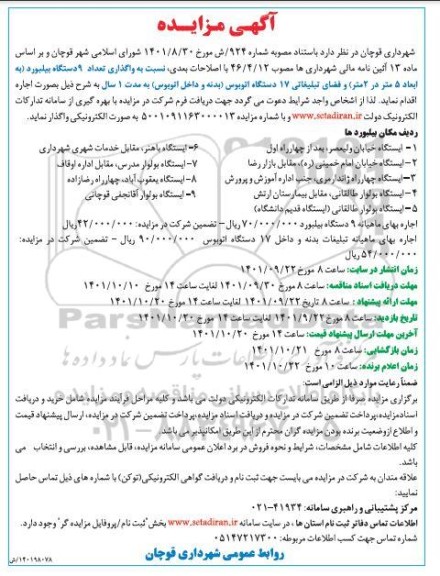 آگهی مزایده
شهرداری قوچان در نظر دارد باستناد مصوبه شماره ۹۲۴/ش مورخ ۱۴۰۱/۸/۳۰ شورای اسلامی شهر قوچان و بر اساس
ماده ۱۳ آئین نامه مالی شهرداری ها مصوب ۴۶/۴/۱۲ با اصلاحات بعدی، نسبت به واگذاری تعداد ۹دستگاه بیلبورد (به
ابعاد ۵ متر در ۲متر) و فضای تبلیغاتی ۱۷ دستگاه اتوبوس (بدنه و داخل اتوبوس) به مدت ۱ سال به شرح ذیل بصورت اجاره
اقدام نماید. لذا از اشخاص واجد شرایط دعوت می گردد جهت دریافت فرم شرکت در مزایده با بهره گیری از سامانه تدارکات
الکترونیک دولت www.setadiran.ir و با شماره مزایده ۵۰۰۱۰۹۱۱۶۳۰۰۰۰۱۳ به صورت الکترونیکی واگذار نماید.
ردیف مکان بیلبورد ها
۱- ایستگاه خیابان ولیعصر، بعد از چهارراه اول
۲- ایستگاه خیابان امام خمینی (ره)، مقابل بازار رضا
۳- ایستگاه چهارراه ژاندارمری، جنب اداره آموزش و پرورش
۴- ایستگاه بولوار طالقانی، مقابل بیمارستان ارتش
۵- ایستگاه بولوار طالقانی (ایستگاه قدیم دانشگاه)
۶- ایستگاه باهنر، مقابل خدمات شهری شهرداری
۷- ایستگاه بولوار مدرس، مقابل اداره اوقاف
۸- ایستگاه یعقوب آباد، چهارراه رضازاده
۹- ایستگاه بولوار آقانجفی قوچانی
اجاره بهای ماهیانه ۹ دستگاه بیلبورد ۷۰/۰۰۰/۰۰۰ریال – تضمین شرکت در مزایده: ۴۲/۰۰۰/۰۰۰ریال
اجاره بهای ماهیانه تبلیغات بدنه و داخل ۱۷ دستگاه اتوبوس ۹۰/۰۰۰/۰۰۰ ریال – تضمین شرکت در مزایده:
۵۴/۰۰۰/۰۰۰ریال
زمان انتشار در سایت: ساعت ۸ مورخ ۱۴۰۱/۰۹/۲۲
مهلت دریافت اسناد مناقصه: ساعت ۸ مورخ ۱۴۰۱/۰۹/۳۰ لغایت ساعت ۱۴ مورخ ۱۴۰۱/۱۰/۱۰
مهلت ارائه پیشنهاد : ساعت ۸ تاریخ ۱۴۰۱/۰۹/۲۲ لغایت ساعت ۱۴ مورخ ۱۴۰۱/۱۰/۲۰
تاریخ بازدید: ساعت ۸ مورخ ۱۴۰۱/۹/۲۲ لغایت ساعت ۱۴ مورخ ۱۴۰۱/۱۰/۲۰
آخرین مهلت ارسال پیشنهاد قیمت: ساعت ۱۴ مورخ ۱۴۰۱/۱۰/۲۰
زمان بازگشایی: ساعت ۸ مورخ ۱۴۰۱/۱۰/۲۱
زمان اعلام برنده: ساعت ۱۰ مورخ ۱۴۰۱/۱۰/۲۲
ضمنا رعایت موارد ذیل الزامی است:
برگزاری مزایده صرفا از طریق سامانه تدارکات الکترونیکی دولت می باشد و کلیه مراحل فرآیند مزایده شامل خرید و دریافت
اسنادمزایده،پرداخت تضمین شرکت در مزایده و دریافت اسناد مزایده،پرداخت تضمین شرکت در مزایده، ارسال پیشنهاد قیمت
و اطلاع ازوضعیت برنده بودن مزایده گزان محترم از این طریق امکانپذیر می باشد.
کلیه اطلاعات شامل مشخصات، شرایط و نحوه فروش در برد اعلان عمومی سامانه مزایده، قابل مشاهده، بررسی و انتخاب می
باشد.
علاقه مندان به شرکت در مزایده می بایست جهت ثبت نام و دریافت گواهی الکترونیکی(توکن) با شماره های ذیل تماس حاصل
نمایید:
مرکز پشتیبانی و راهبری سامانه: ۴۱۹۳۴-۰۲۱
اطلاعات تماس دفاتر ثبت نام استان ها ، در سایت سامانه www.setadiran.ir بخش"ثبت نام /پروفایل مزایده گر" وجود دارد.
شماره تماس جهت کسب اطلاعات مربوطه: ۰۵۱۴۷۲۱۷۳۰۰
روابط عمومی شهرداری قوچان
۱۴۰۱۹۸۰۷۸/ش